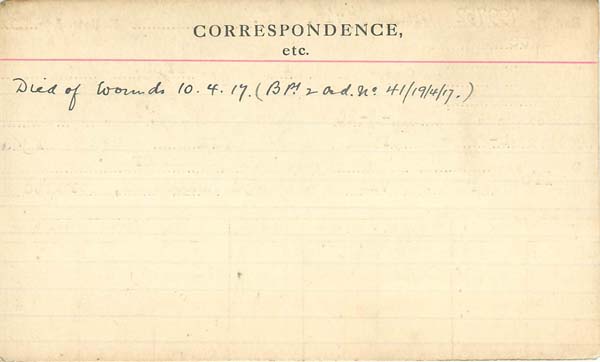 CORRESPONDENCE,
etc.
Died of Wounds 10.4.17. (B Pt 2 Ord. No 41/19/4/17.)